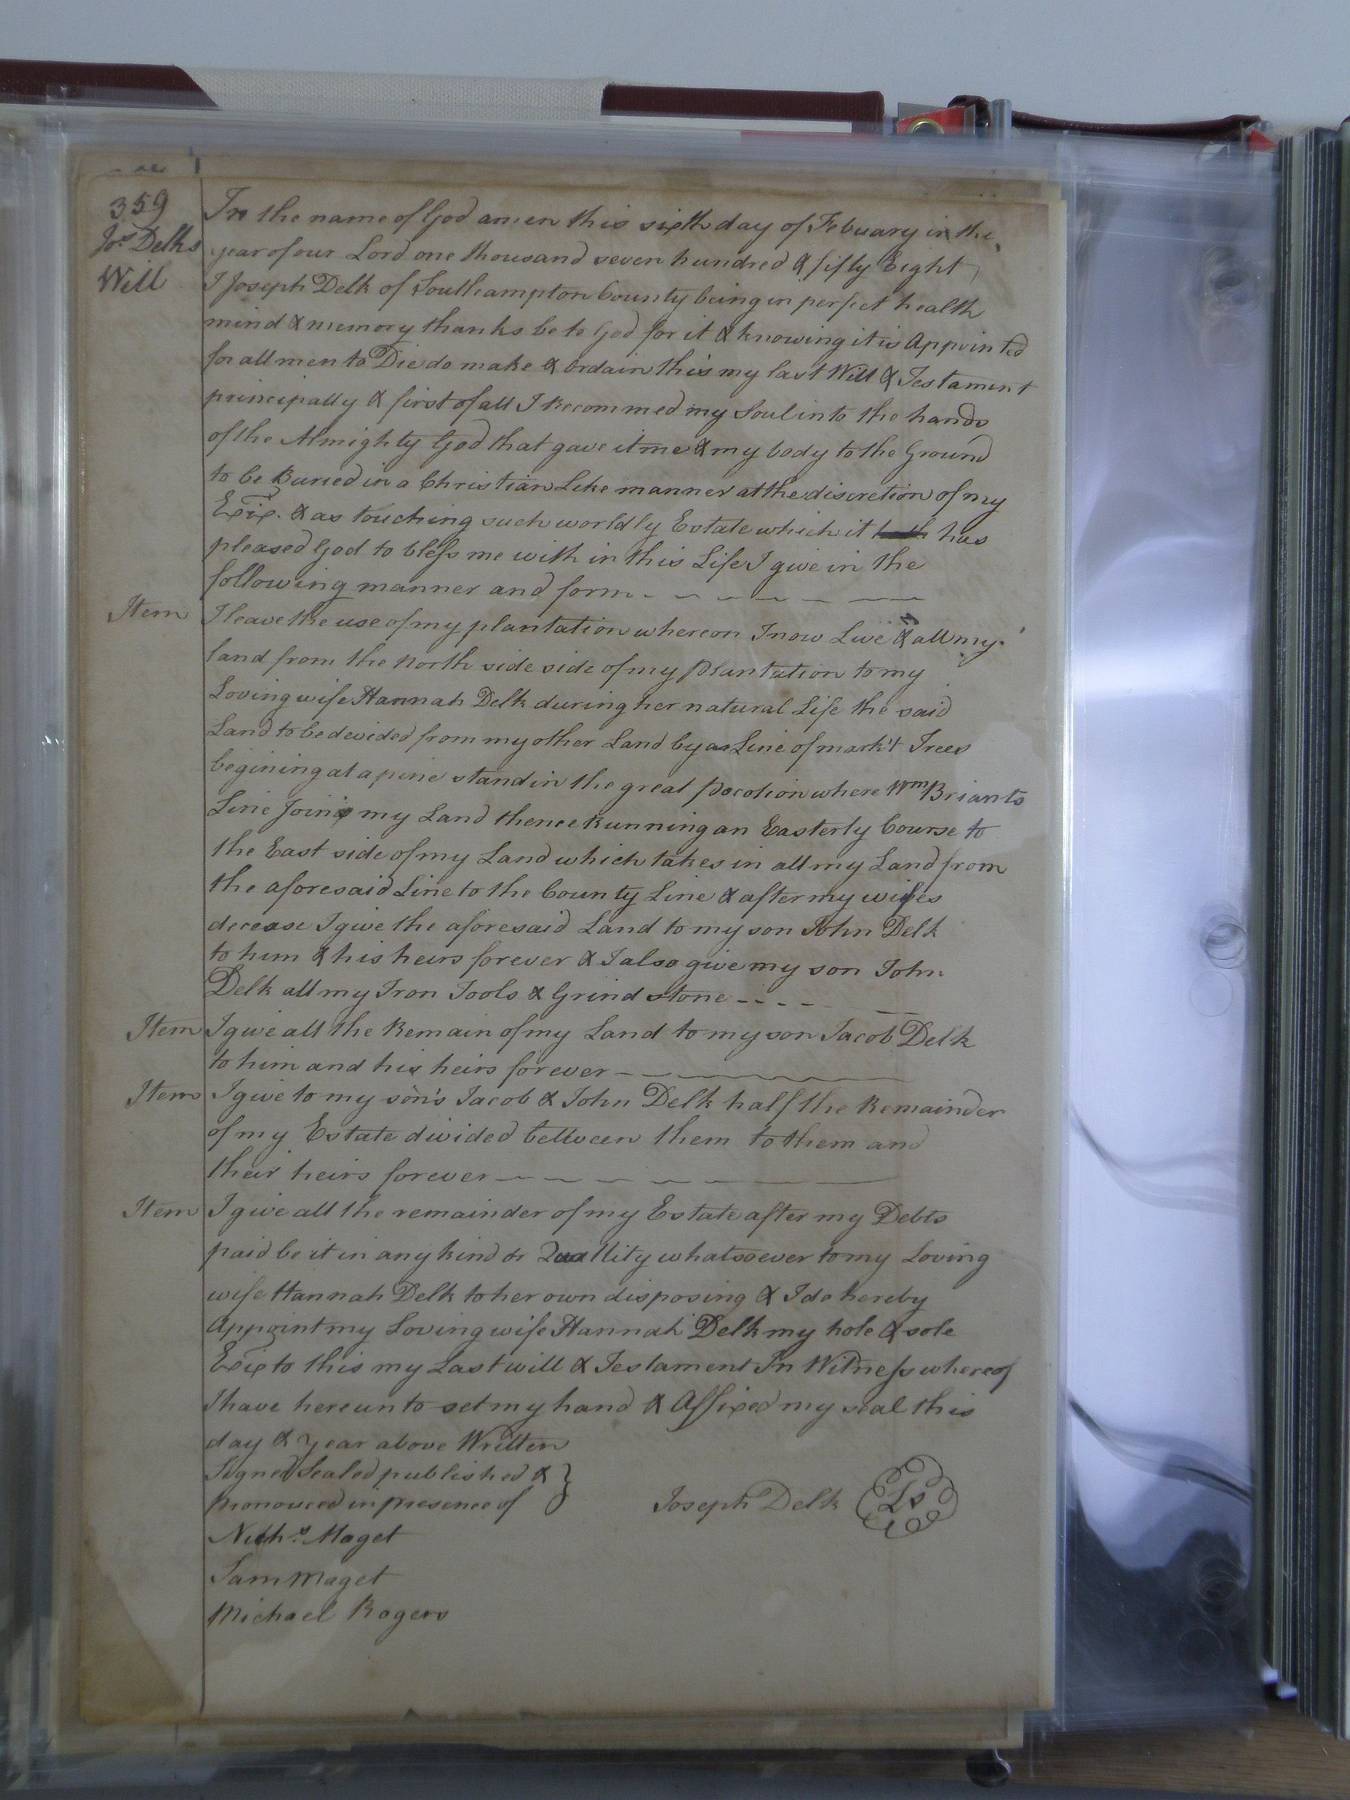 359
Jos. Delks
Will
In the name of God amen this sixth day of Febuary in the
year of our Lord one thousand seven hundred & fifty Eight
I Joseph Delk of Southampton County being in perfect health
mind & memory thanks be to God for it & knowing it is Appointed
for all men to Die do make & Ordain this my last Will & Testament
principally & first of all I Recommed my Soul into the hands
of the Almighty God that gave it me & my body to the Ground
to be Buried in a Christian Like manner at the discretion of my
Exix. & as touching such worldly Estate which it has
pleased God to bless me with in this Life I give in the
following manner and form
Item I leave the use of my plantation whereon I now Live & all my
land from the North side side of my plantation to my
Loving wife Hannah Delk during her natural Life the said
Land to be devided from my other Land by a Line of mark't Trees
begining at a pine stand in the great pocotion where Wm Briants
Line Joins my Land thence Running an Easterly Course to
the East side of my Land which takes in all my Land from
the aforesaid Line to the County Line & after my wifes
decease I give the aforesaid Land to my son John Delk
to him & his heirs forever & I also give my son John
Delk all my Iron Tools & Grind stone
Item I give all the Remain of my Land to my son Jacob Delk
to him and his heirs forever
Item I give to my son's Jacob & John Delk half the Remainder
of my Estate divided between them to them and
their heirs forever
Item I give all the remainder of my Estate after my Debts
paid be it in any kind or Quallity whatsoever to my Loving
wife Hannah Delk to her own disposing & I do hereby
Appoint my Loving wife Hannah Delk my hole & sole
Exix to this my Last will & Testament In Witness whereof
I have hereunto set my hand & Affixed my seal this
day & year above Written
Signed Sealed published &
pronouced in presence of
Joseph Delk Ls
Nichs. Maget
Sam Maget
Michael Rogers